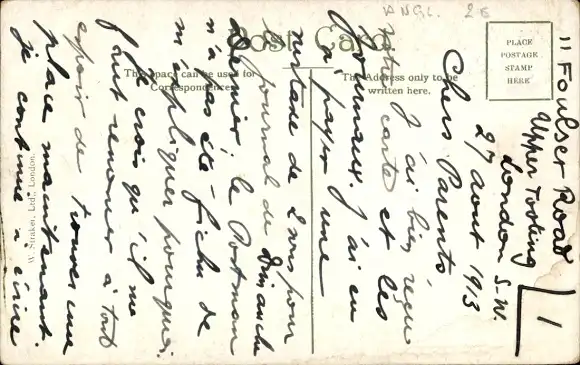 ANGL.
Post Card
This space can be used for
Correspondence.
The Address only to be
written here.
PLACE
POSTAGE
STAMP
HERE
W. Straker, Ltd., London.
11 Foulser Road
Upper Tooting
London S.W.
27 août 1913
1
Chers Parents
J'ai bien reçu
votre carte et les
journaux. J'ai eu
à payer une
de 2 sous pour
le journal de Dimanche
dernier, le Postman
n'a pas été fichu de
m'expliquer pourquoi.
Je crois qu'il me
faut renoncer à tout
espoir de trouver une
place maintenant.
Je continue à écrire